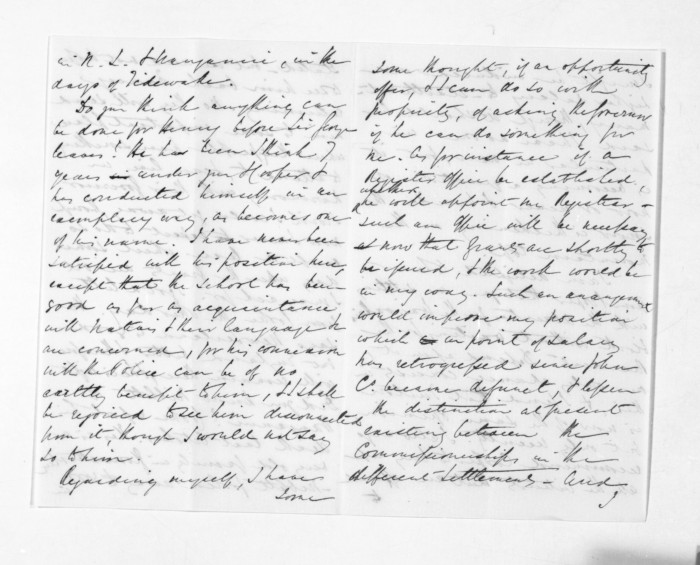 in N. Z. & Wanganui, in the
days of Tidewake.
Do you think anything can
be done for Henry before Sir George
leaves? He has been I think 7
years under you Cooper &
has conducted himself in an
exemplary way, as becomes one
of his name. I have never been
satisfied with his position here,
except that the School has been
good as far as acquaintance
with Natives & their language &c
are concerned, for his connexion
with the Police can be of no
earthly benefit to him, & I shall
be rejoiced to see him disconnected
from it, though I would not say
so to him.
Regarding myself, I have
some
some thought, if an opportunity
offer, & I can do so with
propriety, of asking the Governor
if he can do something for
me. As for instance if a
Register Office be established,
whether
he will appoint me Registrar -
such an Office will be necessary
now that Grants are shortly to
be issued, & the work would be
in my way. Such an arrangement
would improve my position
which in point of salary
has retrogressed since John
Co. became defunct, & lessen
the distinction at present
existing between the
Commissionerships in the
different Settlements - And